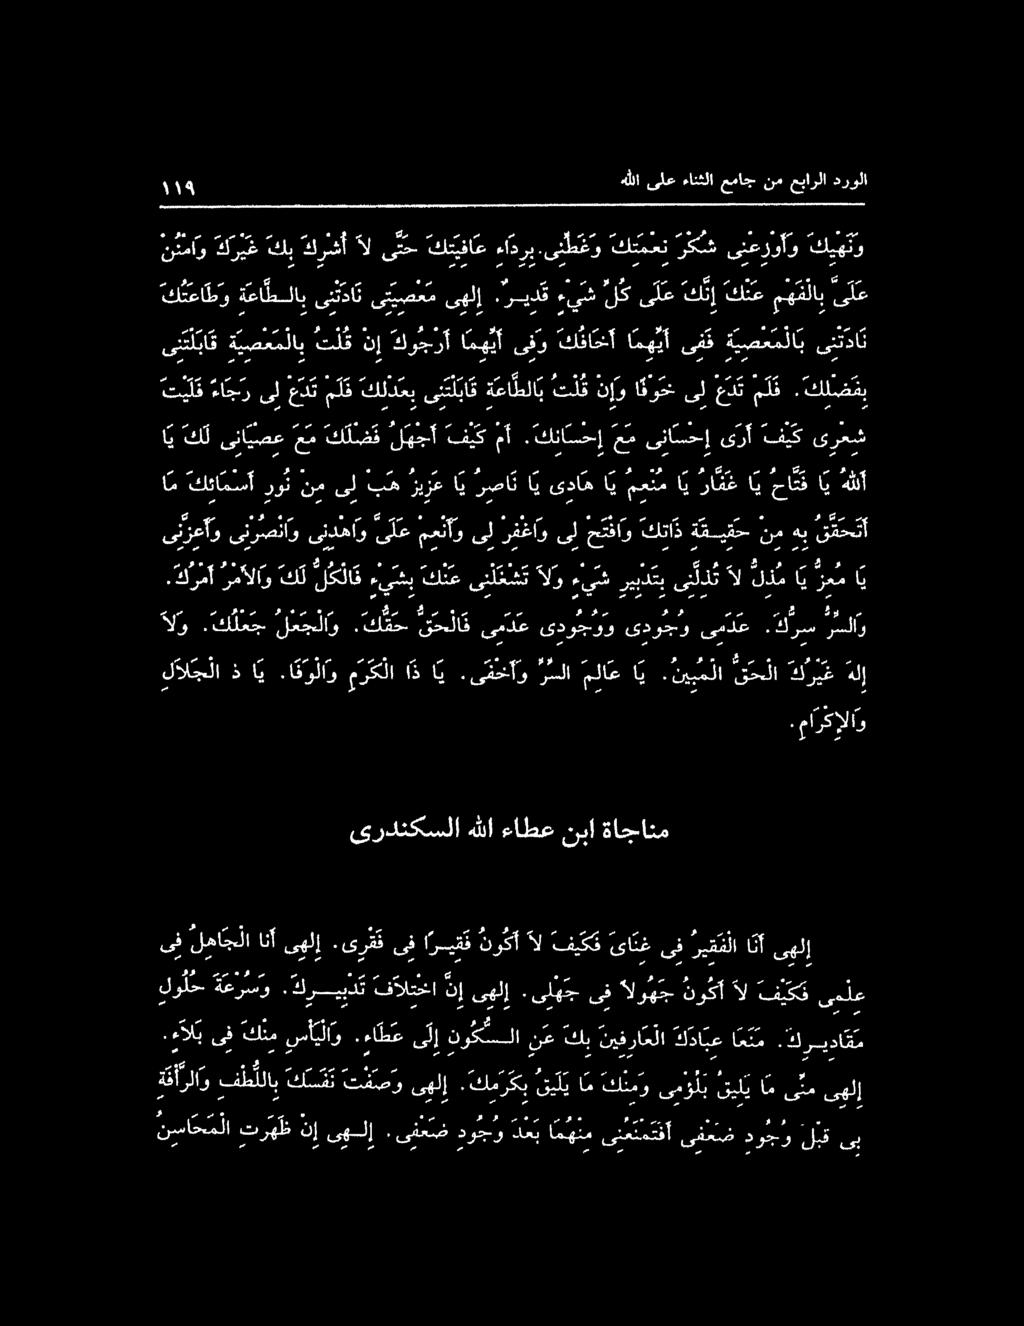 الورد الرابع من جامع الثناء على الله ١١٩
وَنَهْيِكَ وَأَوْزِعْنِى شُكْرَ نِعْمَتِكَ وَغَطِّنِى.بِرِدَاءِ عَافِيَتِكَ حَتَّى لاَ أُشْرِكَ بِكَ غَيْرَكَ وَامْنُنْ
عَلَىَّ بِالْفَهْمِ عَنْكَ إِنَّكَ عَلَى كُلِّ شَىْءٍ قَدِيـرٌ. إِلهِى مَعْصِيَتِى نَادَتْنِى بِالـطَّاعَةِ وَطَاعَتُكَ
نَادَتْنِى بَالْمَعْصِيَةِ فَفِى أَيِّهِمَا أَخَافُكَ وَفِى أَيِّهِمَا أَرْجُوكَ إِنْ قُلْتُ بِالْمَعْصِيَةِ قَابَلْتَنِى
بِفَضْلِكَ. فَلَمْ تَدَعْ لِى خَوْفًا وَإِنْ قُلْتُ بَالطَّاعَةِ قَابَلْتَنِى بِعَدْلِكَ فَلَمْ تَدَعْ لِى رَجَاءً فَلَيْتَ
شِعْرِى كَيْفَ أَرَى إِحْسَانِى مَعَ إِحْسَانِكَ. أَمْ كَيْفَ أَجْهَلُ فَضْلَكَ مَعَ عِصْيَانِى لَكَ يَا
اَللهُ يَا فَتَّاحُ يَا غَفَّارُ يَا مُنْعِمُ يَا هَادِى يَا نَاصِرُ يَا عَزِيزُ هَبْ لِى مِنْ نُورِ أَسْمَائِكَ مَا
أَتَحَقَّقُ بِهِ مِنْ حَقِيـقَةِ ذَاتِكَ وَافْتَحْ لِى وَاغْفِرْ لِى وَأَنْعِمْ عَلَىَّ وَاهْدِنِى وَانْصُرْنِى وَأَعِزَّنِى
يَا مُعِزُّ يَا مُذِلُّ لاَ تُذِلَّنِى بِتَدْبِيرِ شَىْءٍ وَلاَ تَشْغَلْنِى عَنْكَ بِشَىْءٍ فَالْكُلُّ لَكَ وَالأَمْرُ أَمْرُكَ.
وَالسِّرُّ سِرُّكَ. عَدَمِى وُجُودِى وَوُجُودِى عَدَمِى فَالْحَقُّ حَقُّكَ. وَالْجَعْلُ جَعْلُكَ. وَلاَ
إِلهَ غَيْرُكَ الْحَقُّ الْمُبِينُ. يَا عَالِمَ السِّرِّ وَأَخْفَى. يَا ذَا الْكَرَمِ وَالْوَفَا. يَا ذ الْجَلاَلِ
وَالإِكْرَامِ.
مناجاة ابن عطاء الله السكندرى
إِلهِى أَنَا الْفَقِيرُ فِى غِنَاىَ فَكَيفَ لاَ أَكُونُ فَقِيـرًا فِى فَقْرِى. إِلهِى أَنا الْجَاهِلُ فِى
عِلْمِى فَكَيْفَ لاَ أَكُونُ جَهُولاً فِى جَهْلِى. إِلهِى إِنَّ اخْتِلاَفَ تَدْبِيـــرِكَ. وَسُرْعَةَ حُلُولِ
مَقَادِيـرِكَ. مَنَعَا عِبَادَكَ الْعَارِفِينَ بِكَ عَنِ الـسُّكُونِ إِلَى عَطَاءٍ. وَالْيَأْسِ مِنْكَ فِى بَلاَءٍ.
إِلهِى مِنِّى مَا يَلِيقُ بَلُؤْمِى وَمِنْكَ مَا يَلِيقُ بِكَرَمِكَ. إِلهِى وَصَفْتَ نَفْسَكَ بِاللُّطْفِ وَالرَّأْفَةِ
بِى قَبْلَ وُجُودِ ضَعْفِى أَفَتَمْنَعُنِى مِنْهُمَا بَعْدَ وُجُودِ ضَعْفِى. إِلـهِى إِنْ ظَهَرَتِ الْمَحَاسِنُ